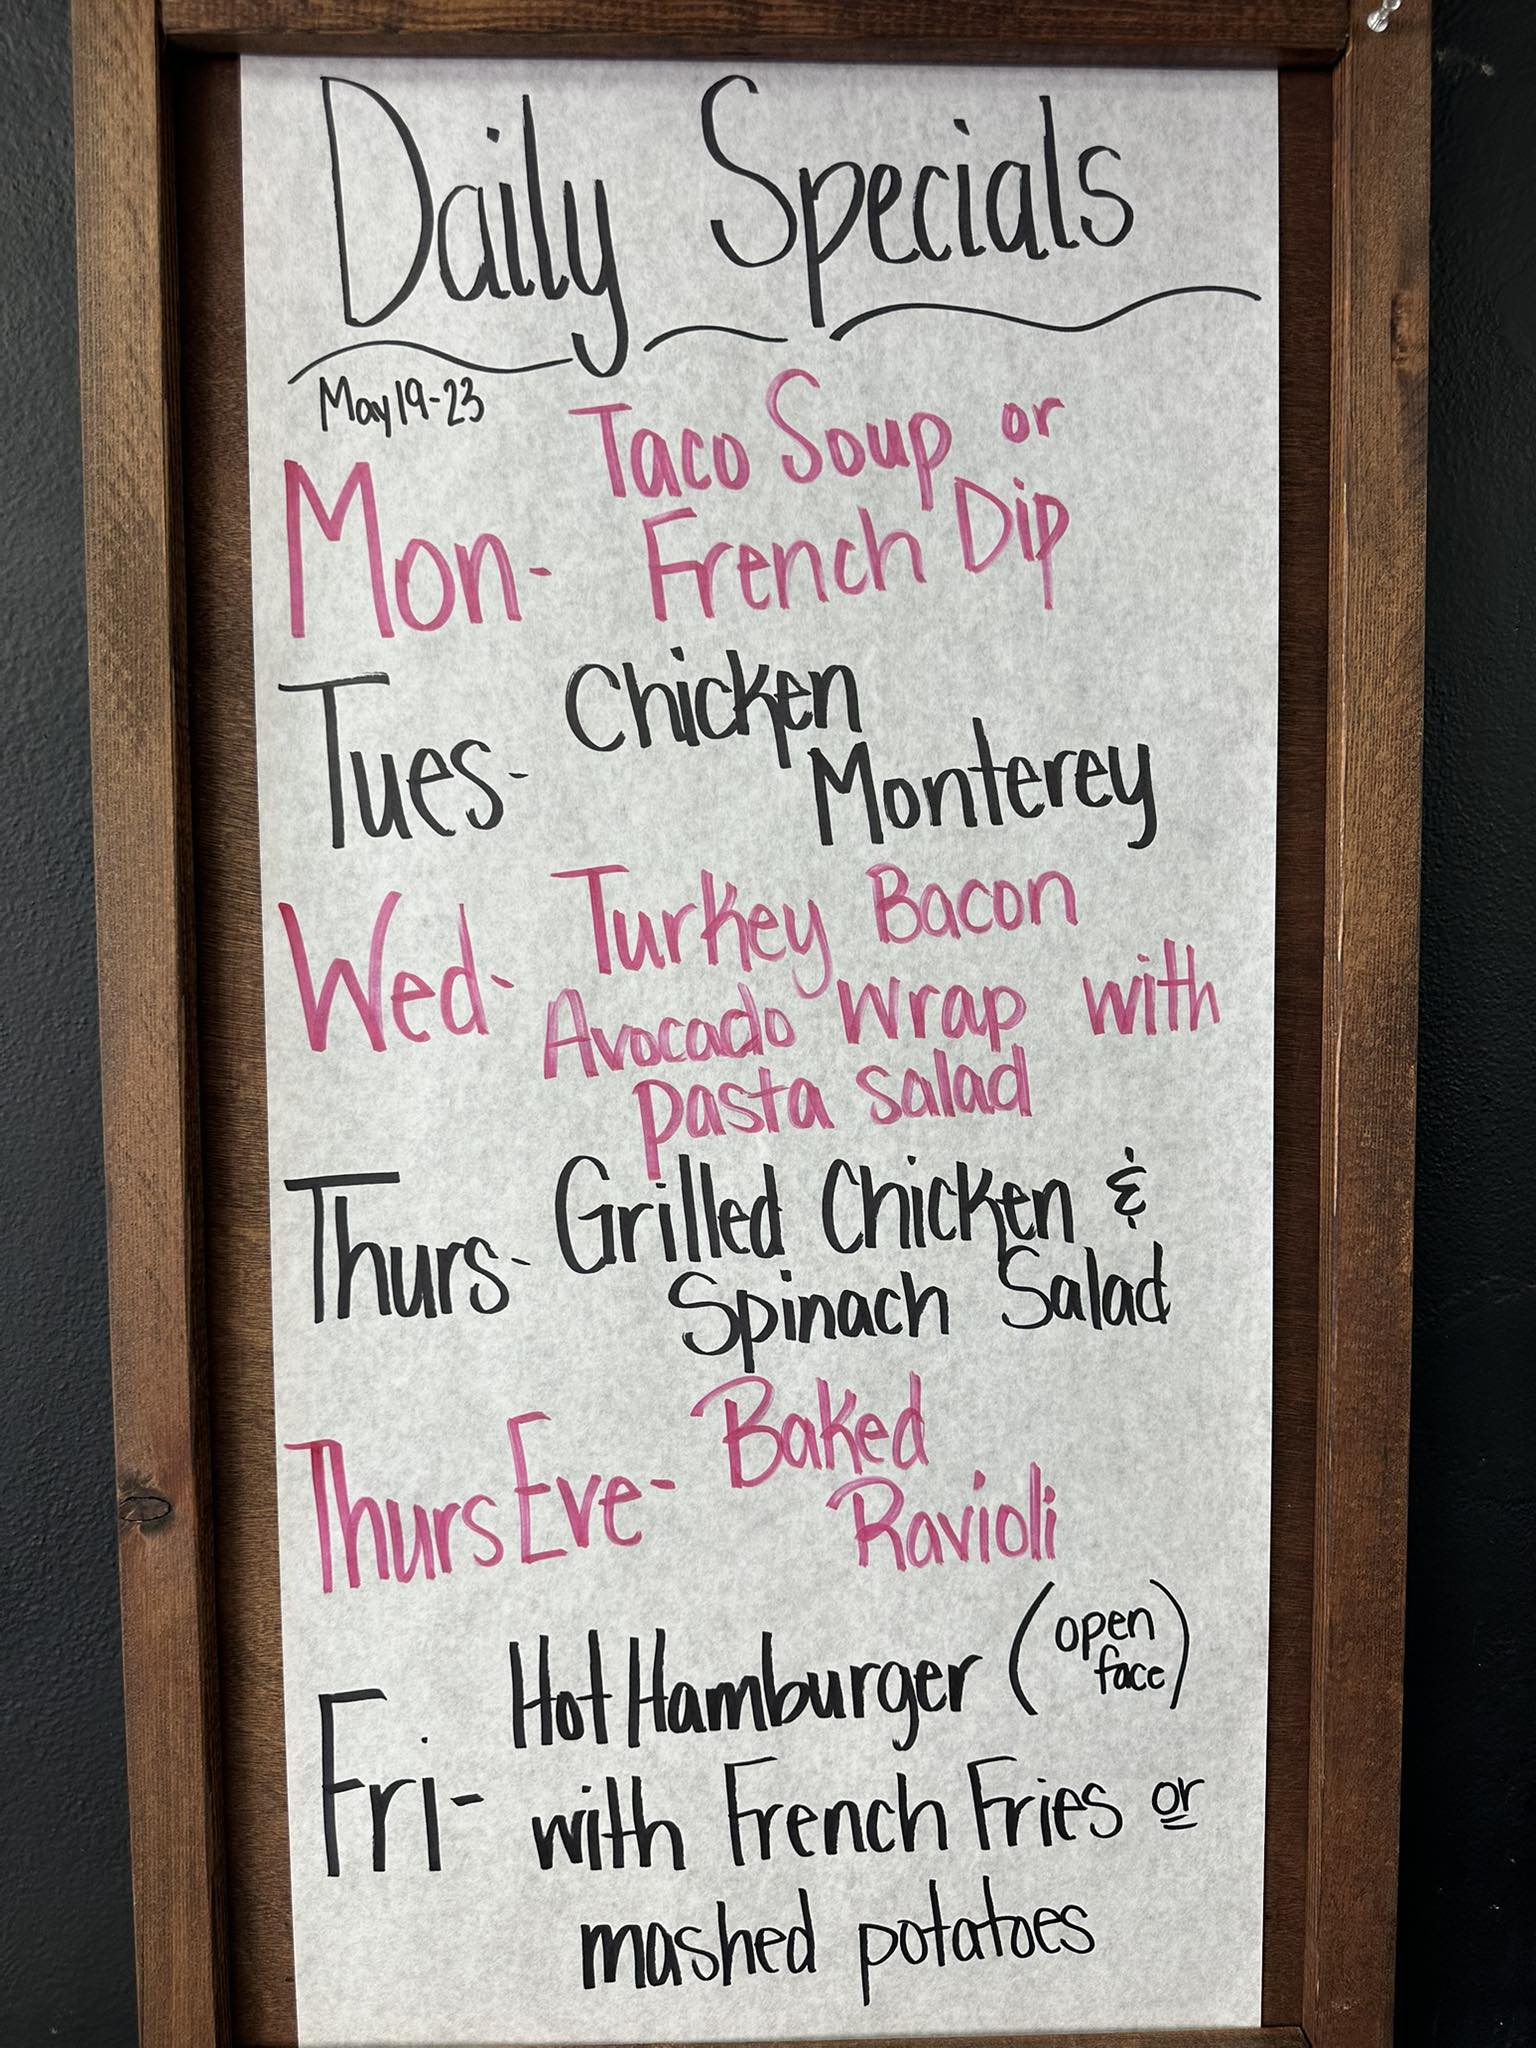 Daily Specials
May 19-23
Mon- Taco Soup or
French Dip
Tues- Chicken
Monterey
Wed- Turkey Bacon
Avocado Wrap with
pasta salad
Thurs- Grilled Chicken &
Spinach Salad
Thurs Eve- Baked
Ravioli
Fri- Hot Hamburger (open
face)
with French Fries or
mashed potatoes